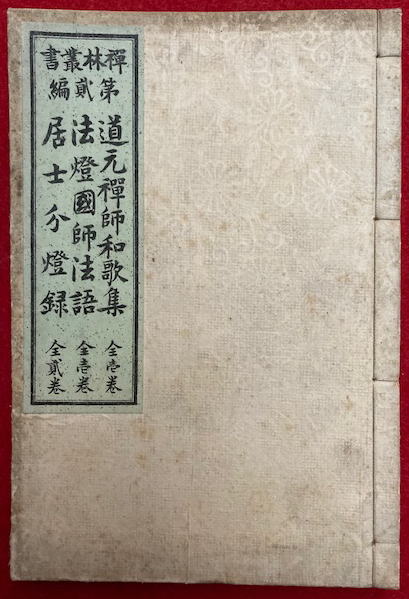 禪林叢書
第貳編
道元禪師和歌集 全壱卷
法燈國師法語 全壹卷
居士分燈録 全貳卷